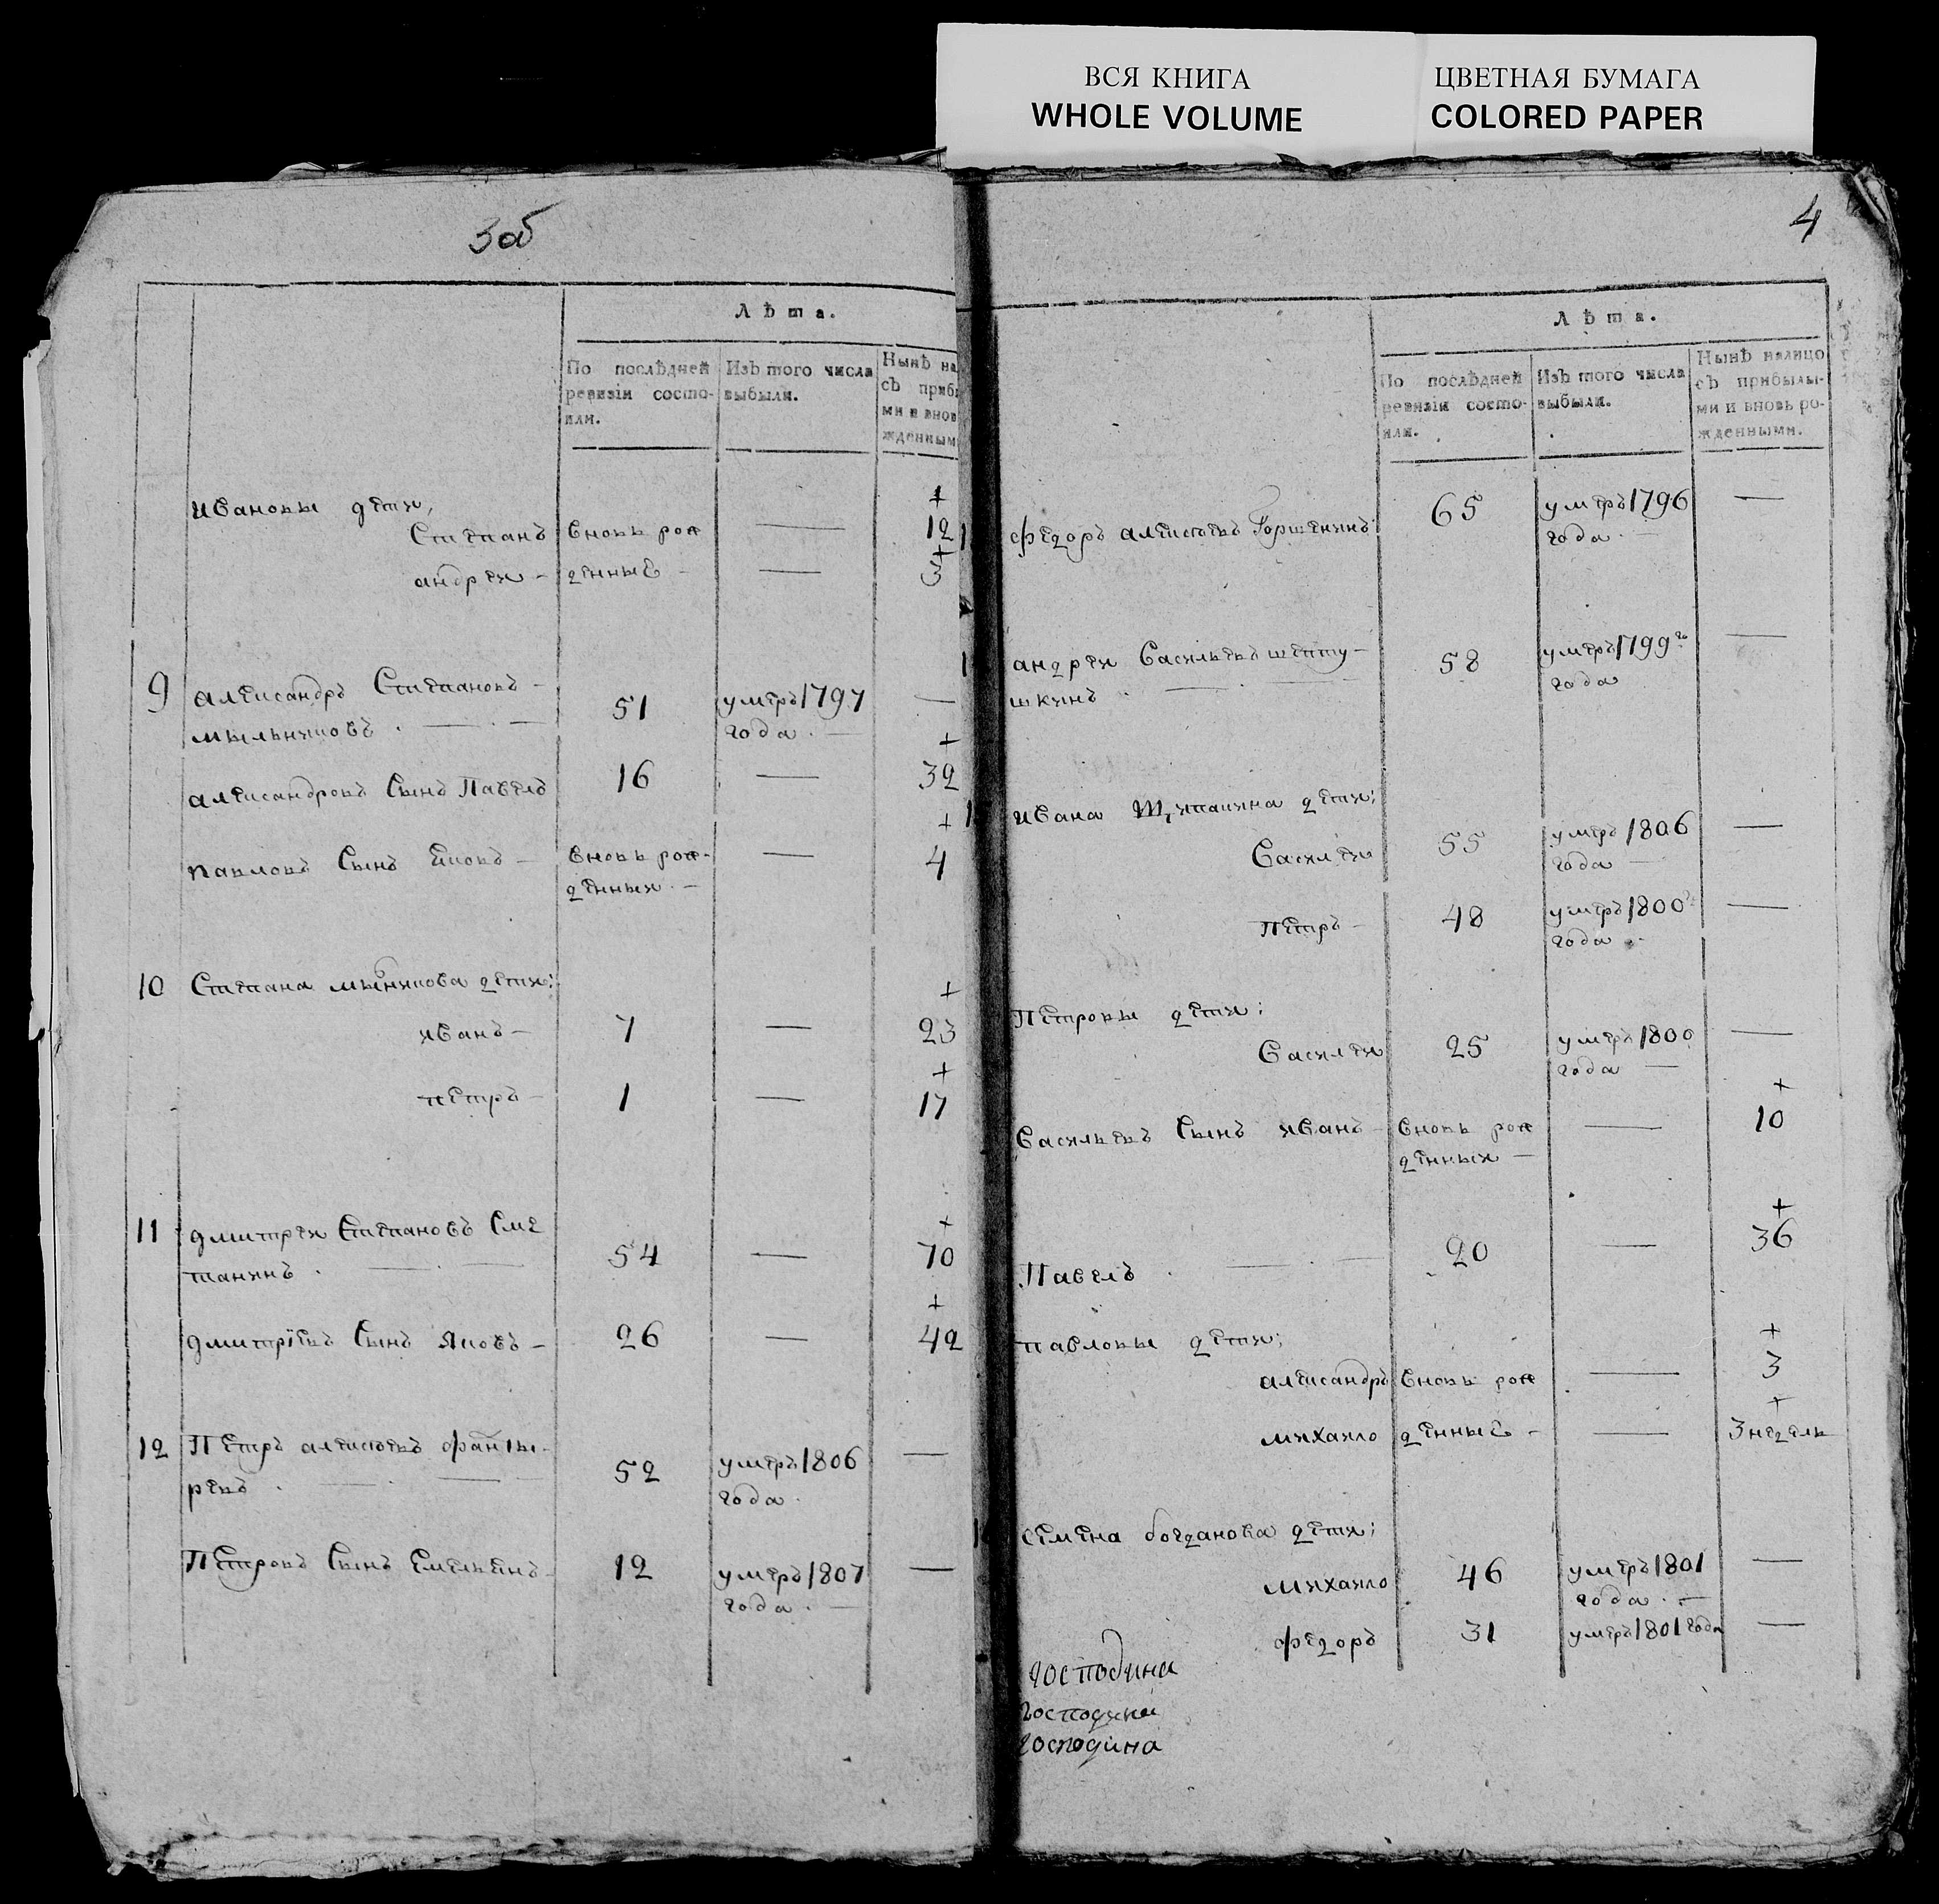 ВСЯ КНИГА
WHOLE VOLUME
ЦВЕТНАЯ БУМАГА
COLORED PAPER
3об
Лѣта.
По послѣдней ревизіи состояли.
Изъ того числа выбыли.
Нынѣ на
съ прибы
ми и внов
жденным
Ивановы дети,
Степанъ вновь рож 12
андреи денныѣ 3
9 александръ Степановъ
мыльниковъ 51 умеръ 1797 года
александровъ Сынъ Павелъ 16 32
павловъ Сынъ яковъ вновь рож 4
денныи
10 Степана мыльникова дети:
иванъ 7 23
петръ 1 17
11 дмитреи Степановъ Сме
танинъ 54 70
дмитріевъ Сынъ Яковъ 26 42
12 Петръ алексѣевъ
ревъ 52 умеръ 1806 года
Петровъ Сынъ Емельянъ 12 умеръ 1807
года
4
Лѣта.
По послѣдней ревизіи состояли.
Изъ того числа выбыли.
Нынѣ налицо
съ прибылы-
ми и вновь ро-
жденными.
федоръ алексѣевъ Горшенинъ 65 умеръ 1796
года
андреи Васильевъ шепту-
шкинъ 58 умеръ 1799го
года
ивана дети:
Василеи 55 умеръ 1806
года
петръ 48 умеръ 1800
года
Петровы дети:
Василеи 25 умеръ 1800
года
Васильевъ Сынъ иванъ вновь рож 10
денныи
Павелъ 20 36
павловы дети:
александръ вновь рож 3
михаило денныѣ 3 недель
семена богданова дети:
михаило 46 умеръ 1801
года
федоръ 31 умеръ 1801 года
господина
господина
господина